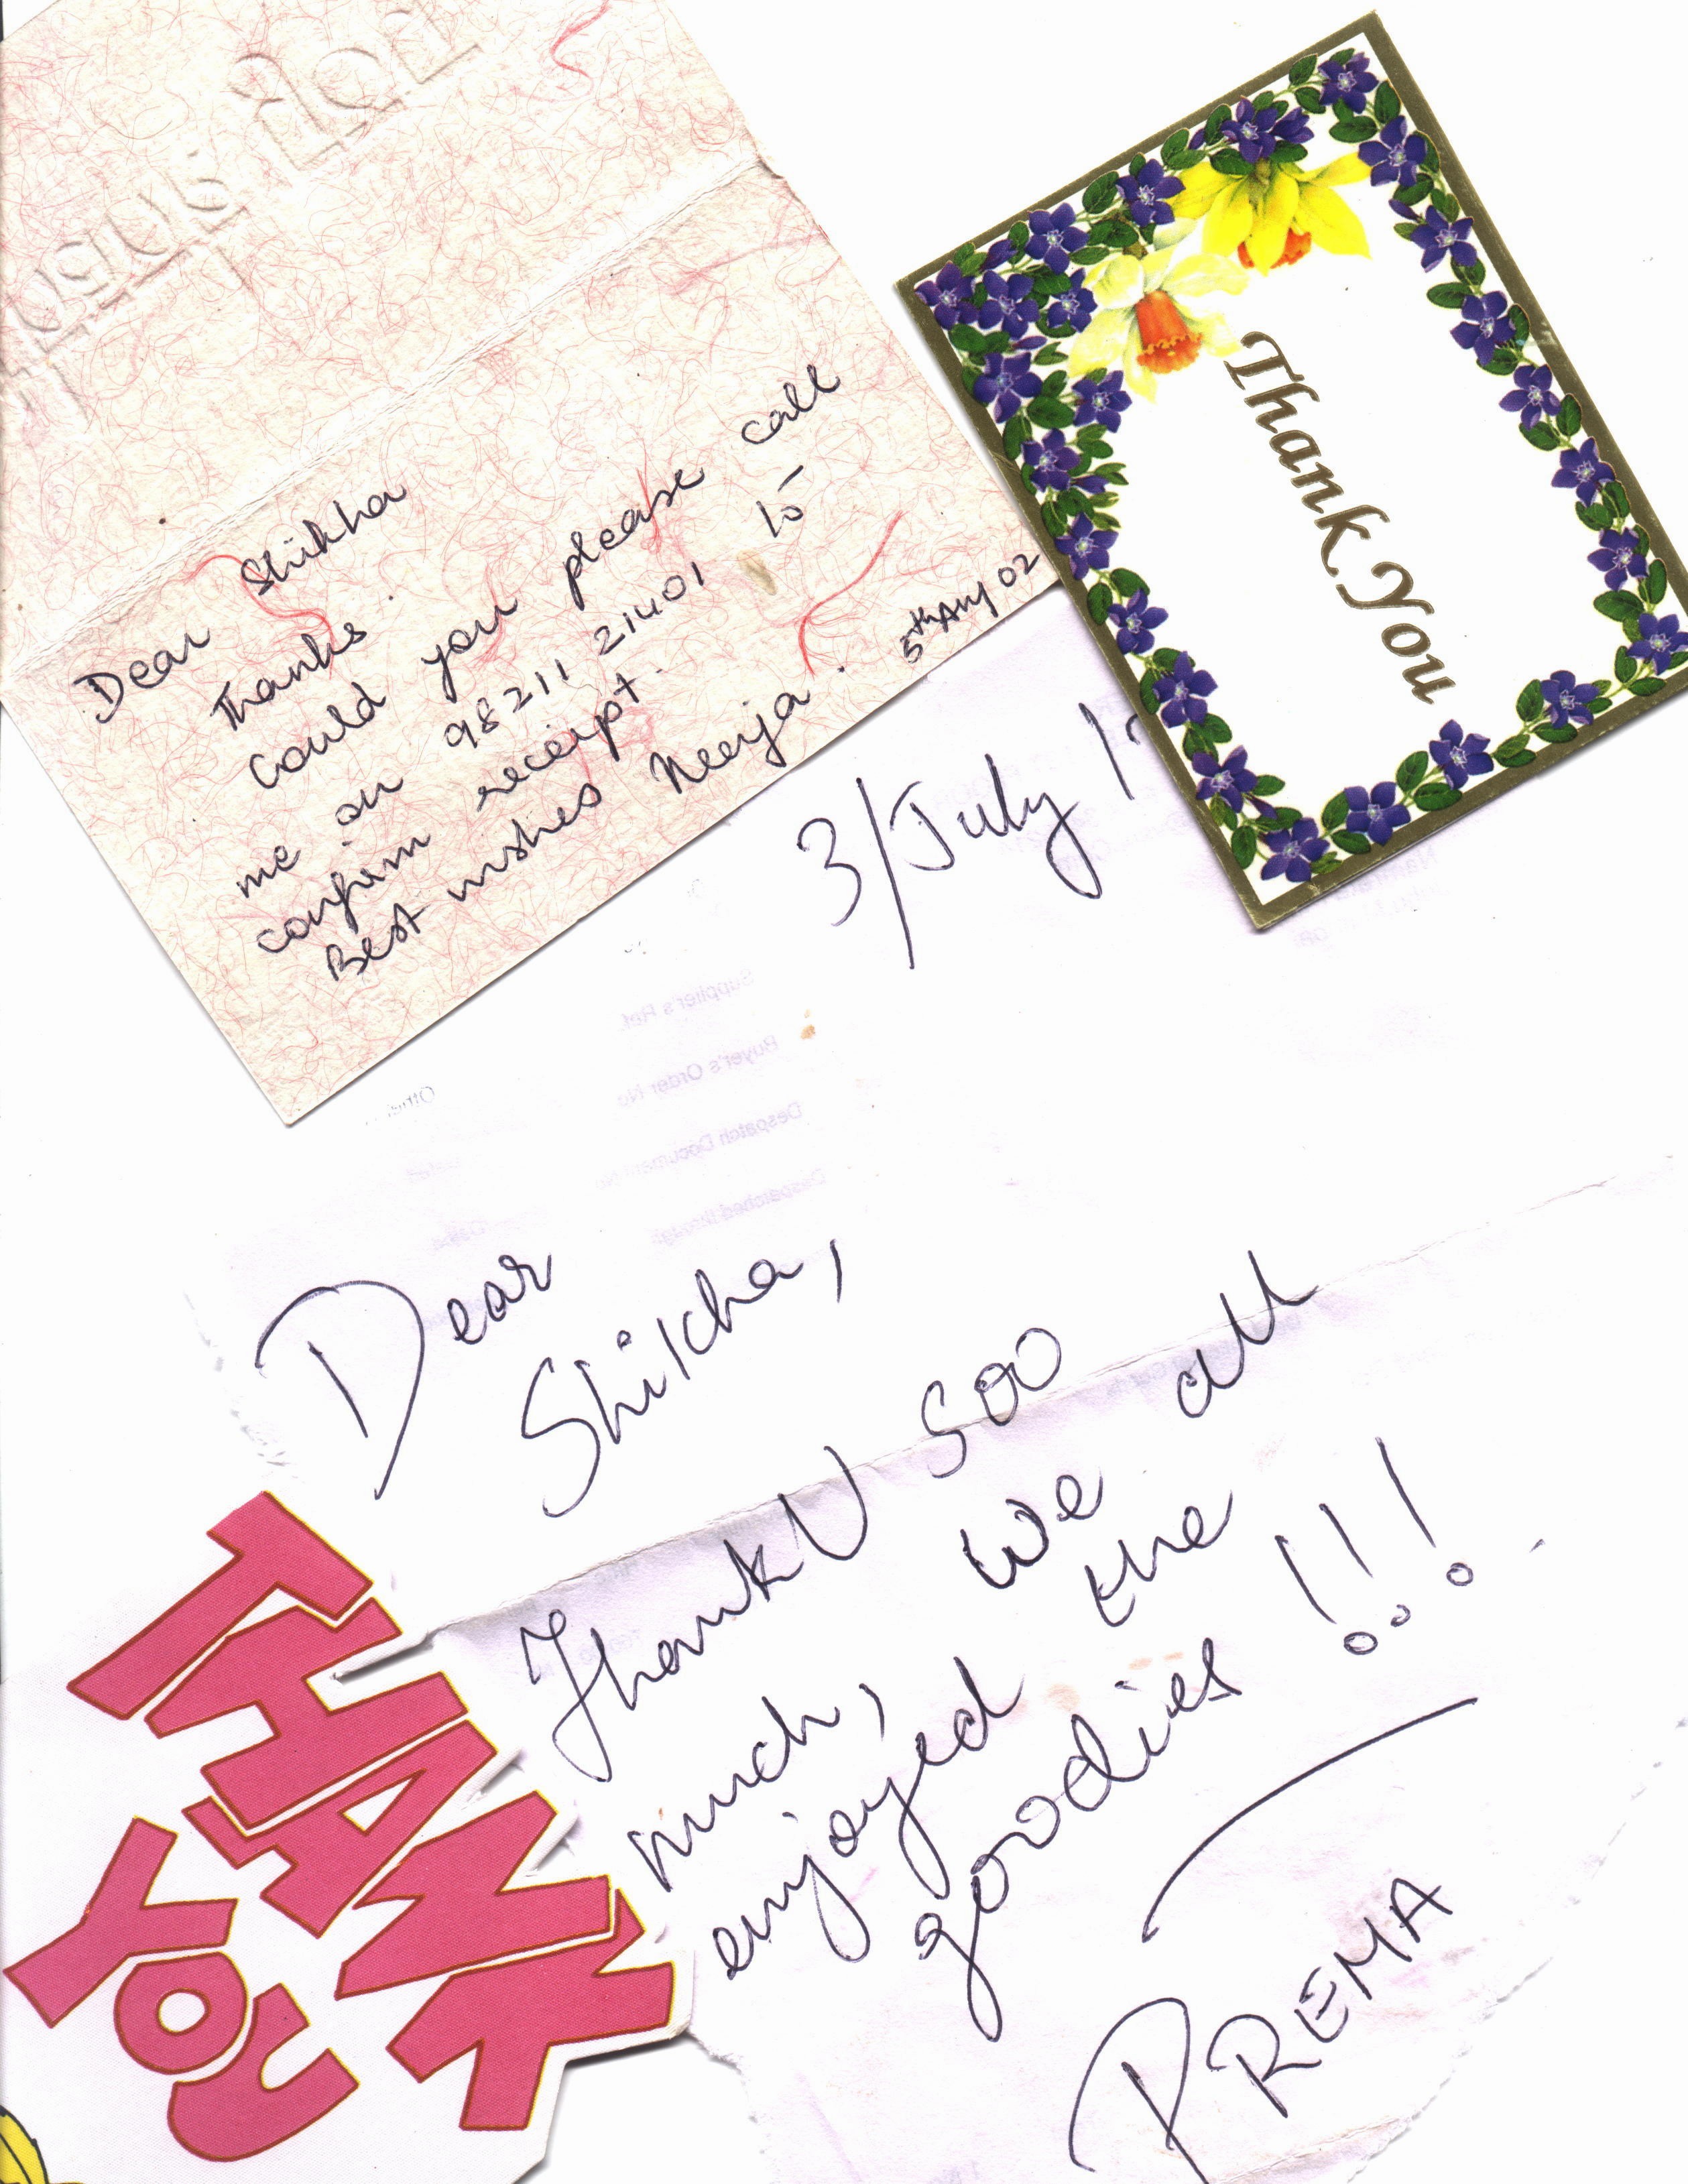 Dear Shikha
Thanks.
Could you please call
me on 98211 21401 to
confirm receipt.
Best wishes Neerja.
5th Aug 02
Thank You
3/July
Dear
Shikha,
Thank U soo
much, we all
enjoyed the
goodies !!!
PREMA
THANK
YOU
Supplier's Ref.
Buyer's Order No.
Despatch Document No.
Despatched through